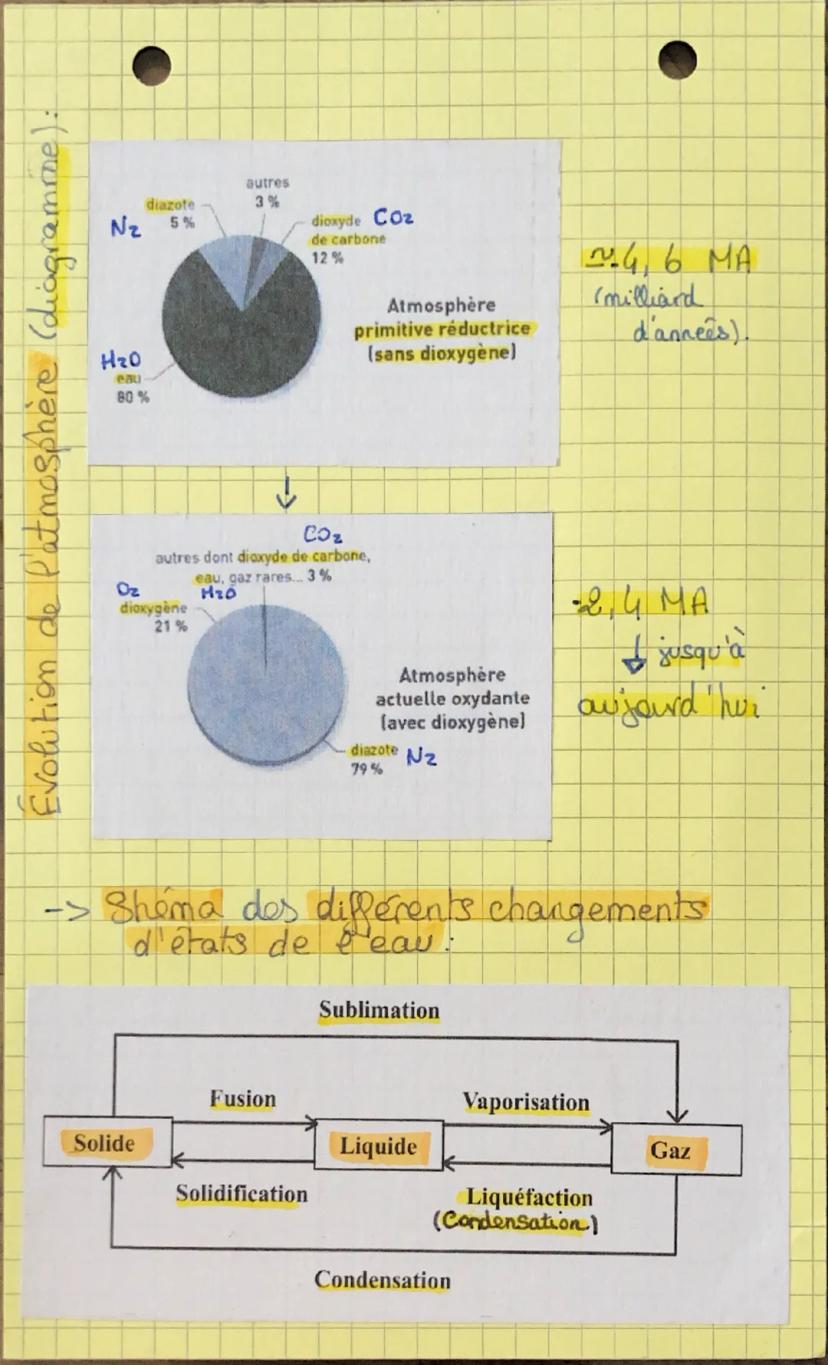 Évolution de l'atmosphère (diagramme):
autres
3 %
diazote
5 %
N2
dioxyde CO2
de carbone
12 %
Atmosphère
primitive réductrice
(sans dioxygène)
H2O
eau
80 %
≈ 4, 6 MA
(milliard
d'années).
CO2
autres dont dioxyde de carbone,
eau, gaz rares... 3 %
H2O
O2
dioxygène
21 %
Atmosphère
actuelle oxydante
(avec dioxygène)
diazote N2
79 %
-2,4 MA
↓ jusqu'à
aujourd'hui
-> Shéma des différents changements
d'états de l'eau:
Sublimation
Fusion
Vaporisation
Solide
Liquide
Gaz
Solidification
Liquéfaction
(Condensation)
Condensation